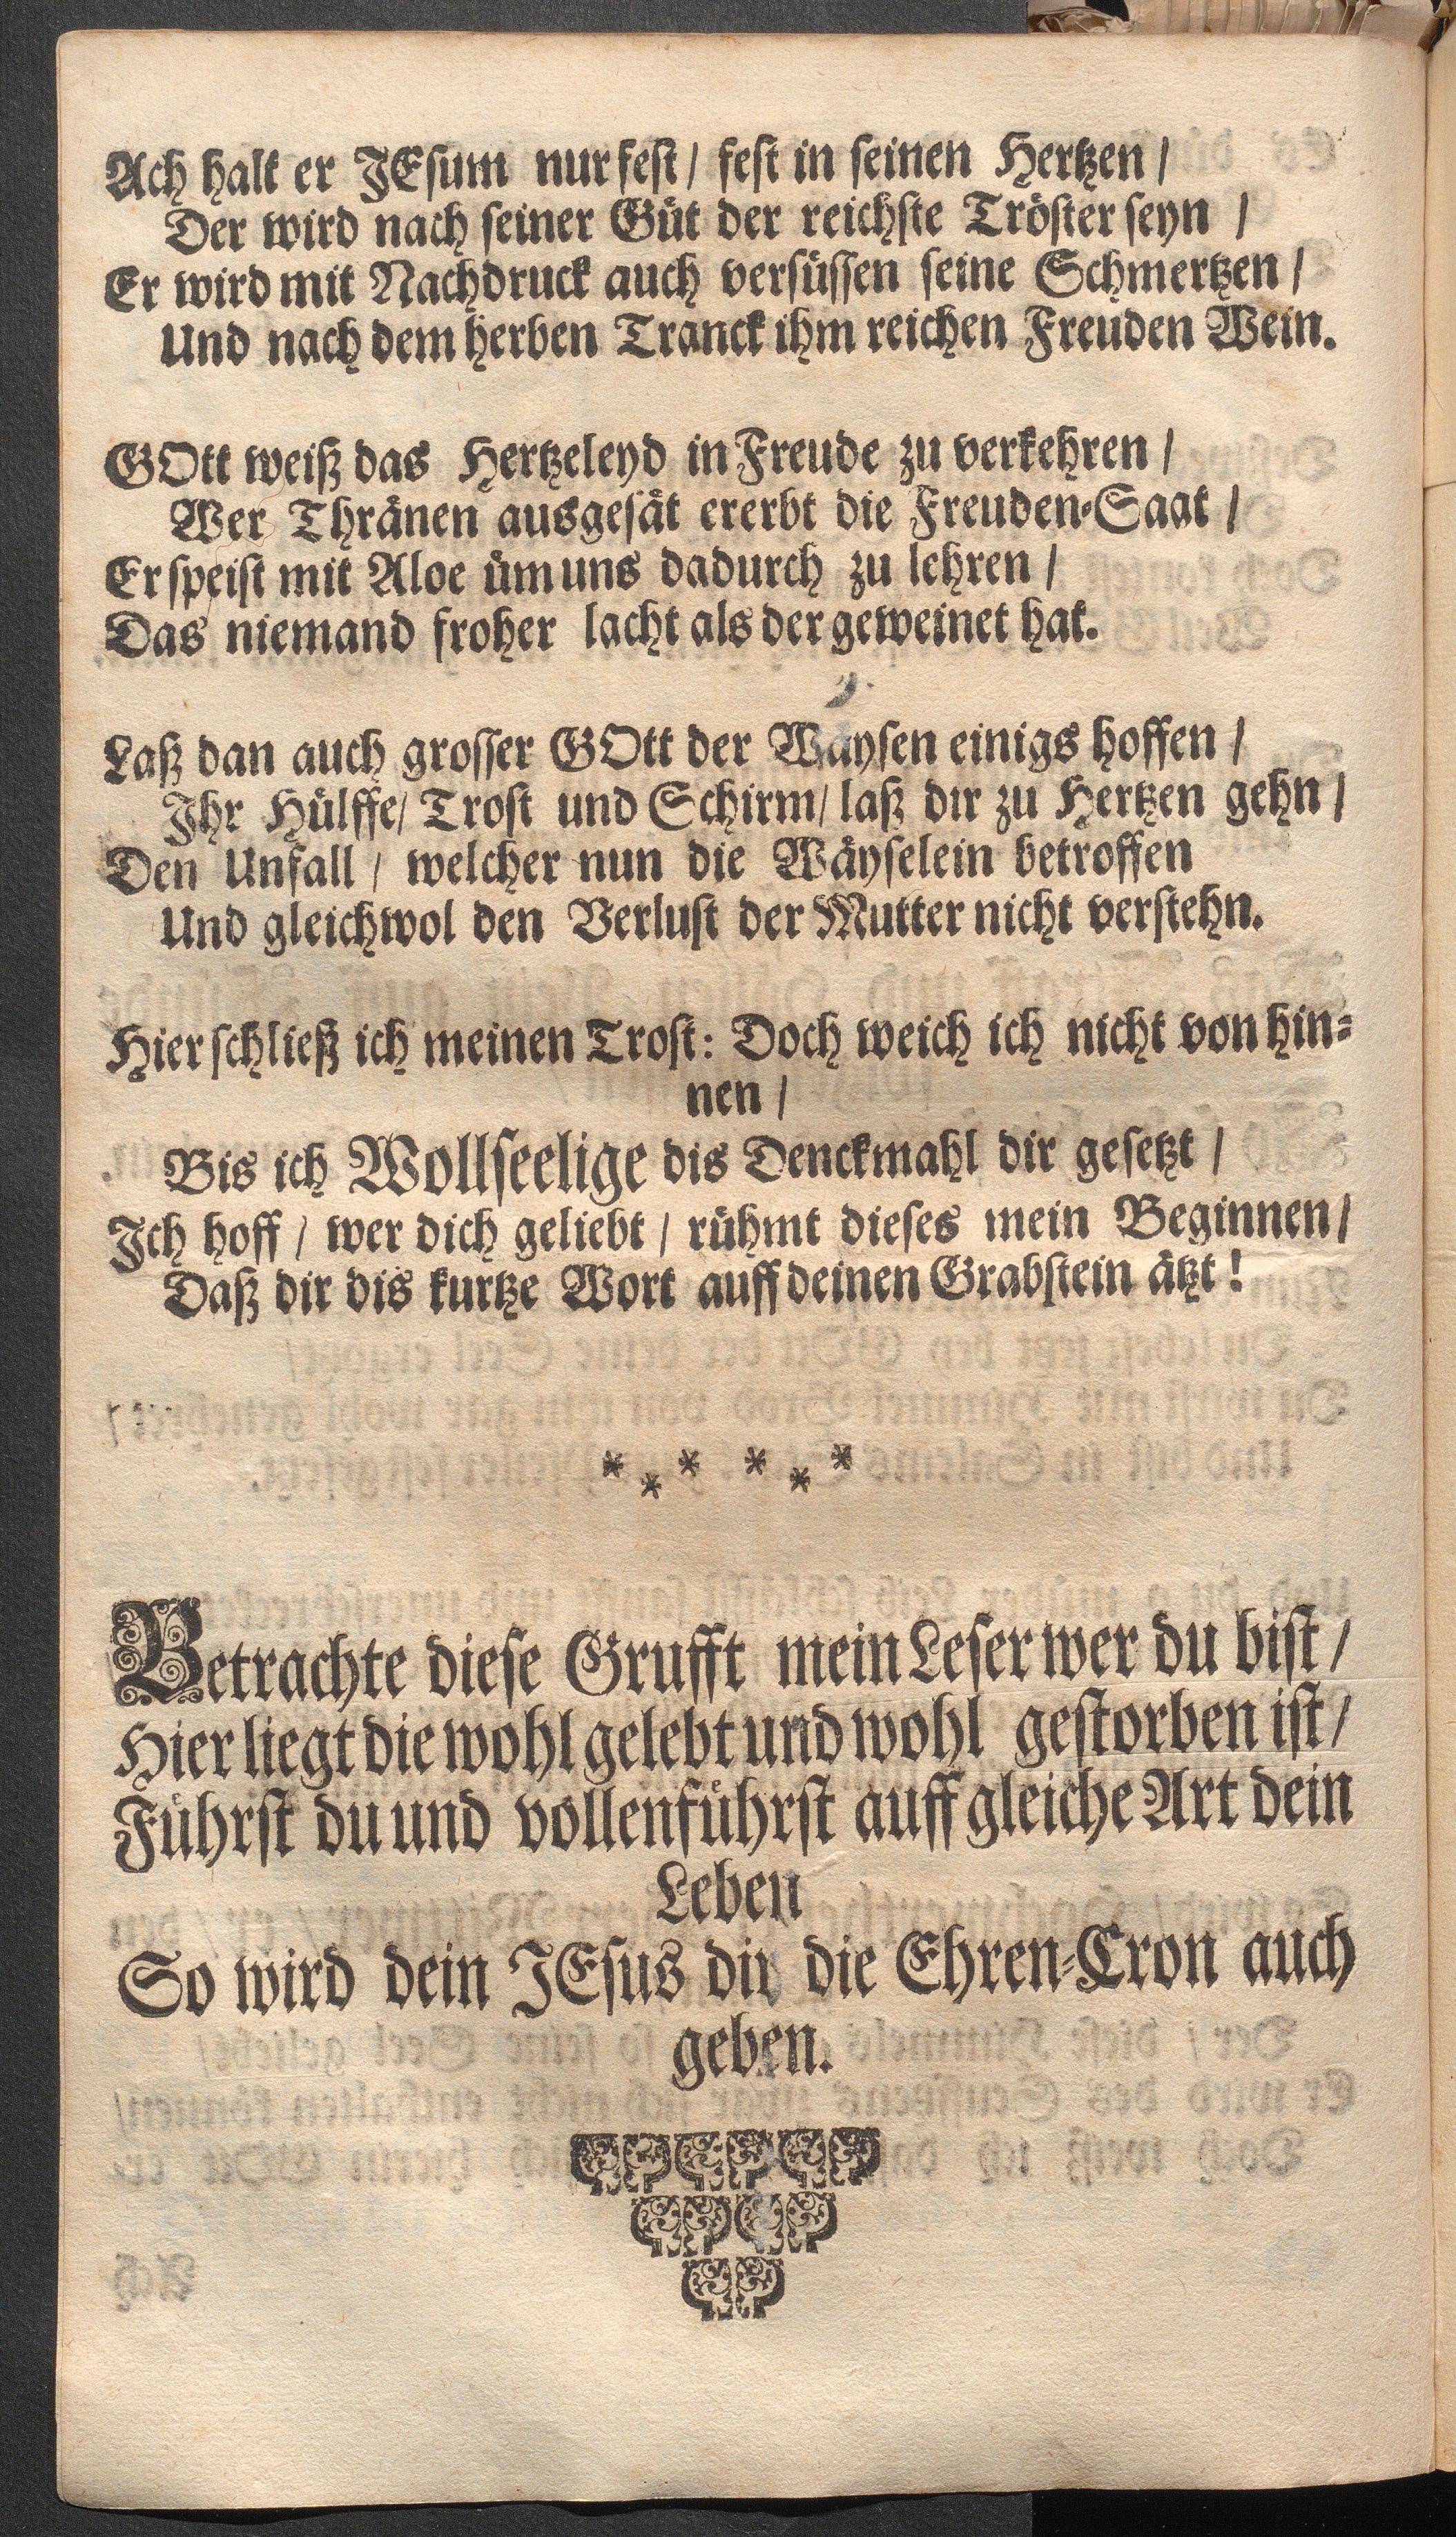 Ach halt er JEsum nur fest / fest in seinen Hertzen /
Der wird nach seiner Güt der reichste Tröster seyn /
Er wird mit Nachdruck auch versüssen seine Schmertzen /
Und nach dem herben Tranck ihm reichen Freuden Wein.
GOtt weiß das Hertzeleyd in Freude zu verkehren /
Wer Thränen ausgesät ererbt die Freuden-Saat /
Er speist mit Aloe üm uns dadurch zu lehren /
Das niemand froher lacht als der geweinet hat.
Laß dan auch grosser GOtt der Wäysen einigs hoffen /
Ihr Hülffe / Trost und Schirm / laß dir zu Hertzen gehn /
Den Unfall / welcher nun die Wäyselein betroffen
Und gleichwol den Verlust der Mutter nicht verstehn.
Hier schließ ich meinen Trost: Doch weich ich nicht von hin-
nen /
Bis ich Wollseelige dis Denckmahl dir gesetzt /
Ich hoff / wer dich geliebt / rühmt dieses mein Beginnen /
Daß dir dis kurtze Wort auff deinen Grabstein ätzt!
* * * * * *
Betrachte diese Grufft mein Leser wer du bist /
Hier liegt die wohl gelebt und wohl gestorben ist /
Führst du und vollenführst auff gleiche Art dein
Leben
So wird dein JEsus dir die Ehren-Cron auch
geben.